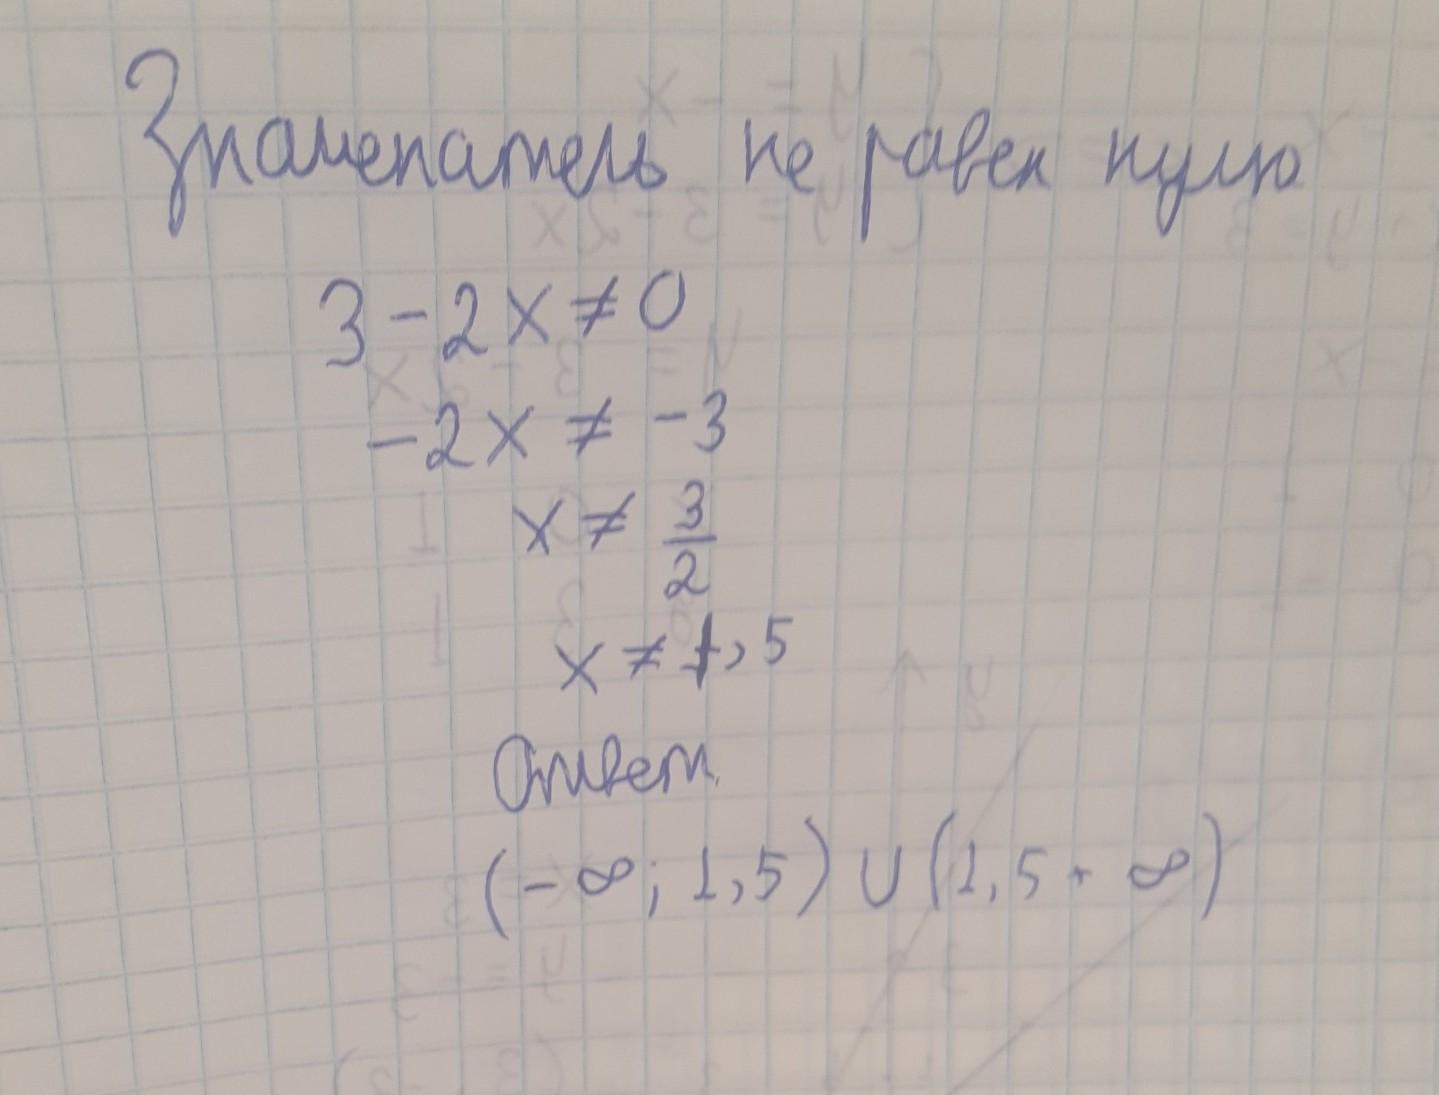 Знаменатель не равен нулю
3 - 2x ≠ 0
-2x ≠ -3
x ≠ 3/2
x ≠ 1,5
Ответ
(-∞; 1,5) ∪ (1,5 + ∞)